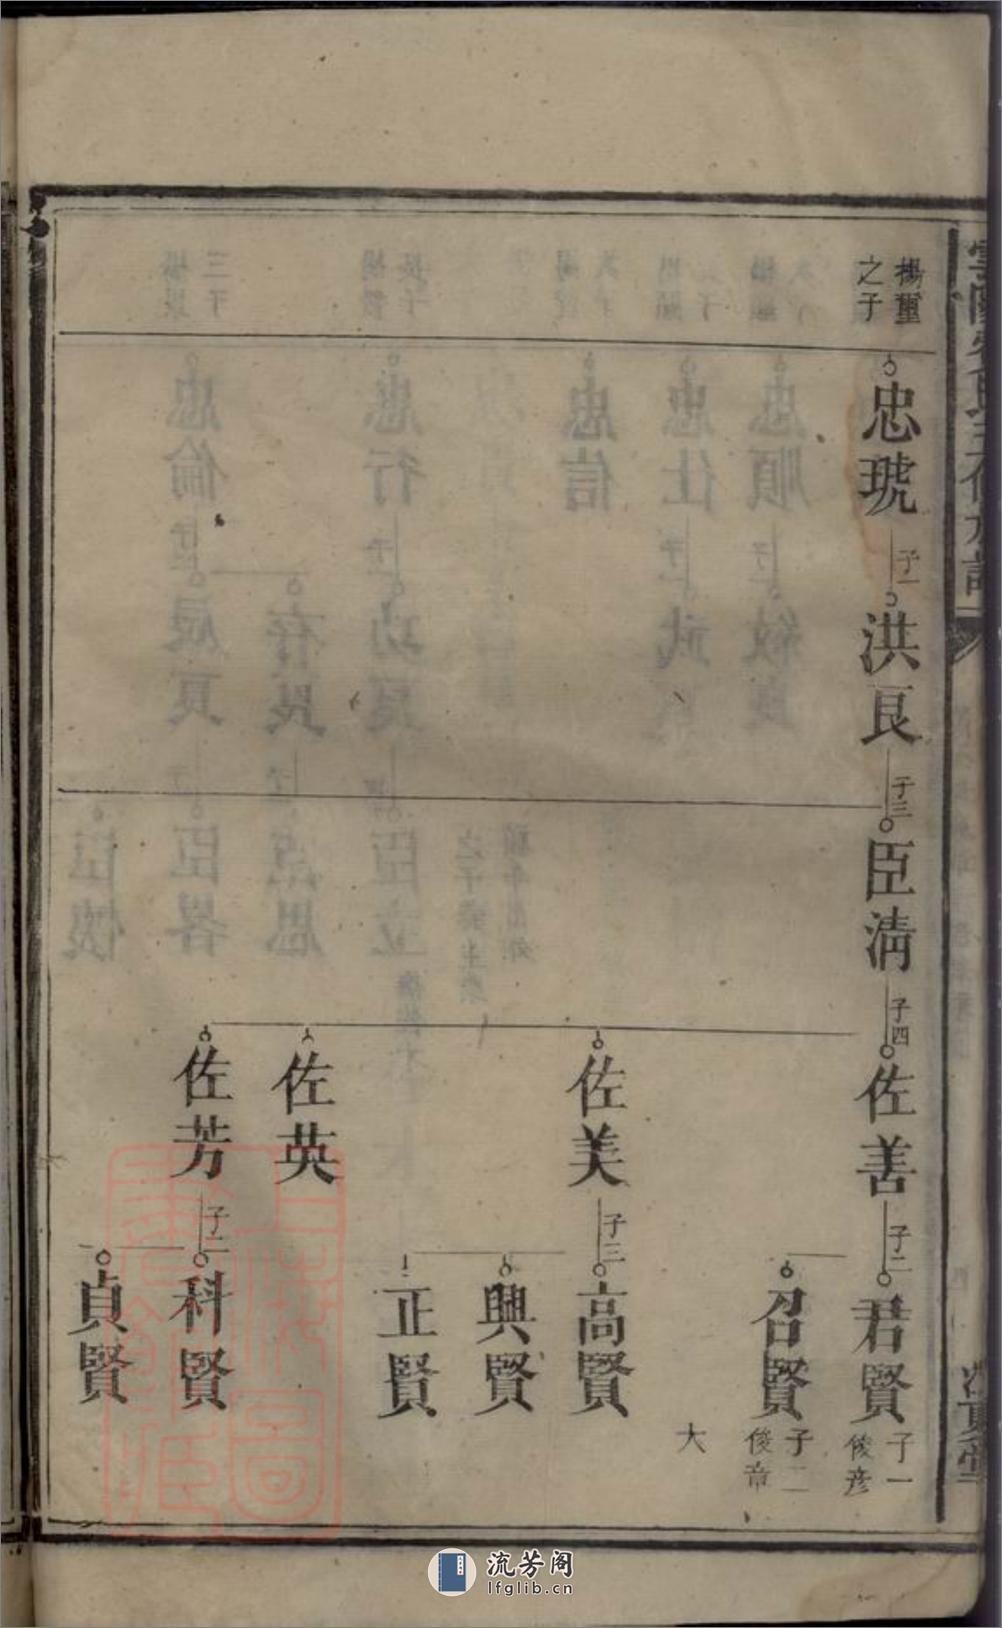 揚重
之子
忠琥
子一
洪良
子三
臣清
子四
佐善
子二
君賢
子一
俊彦
召賢
子二
俊章
大
佐美
子三
高賢
興賢
正賢
佐英
佐芳
子二
科賢
貞賢
流芳阁
lfglib.cn